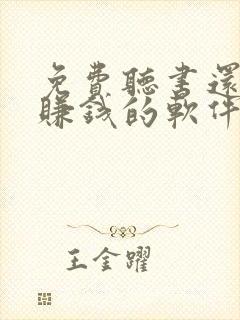 免費聽書還
賺錢的軟件
王金躍